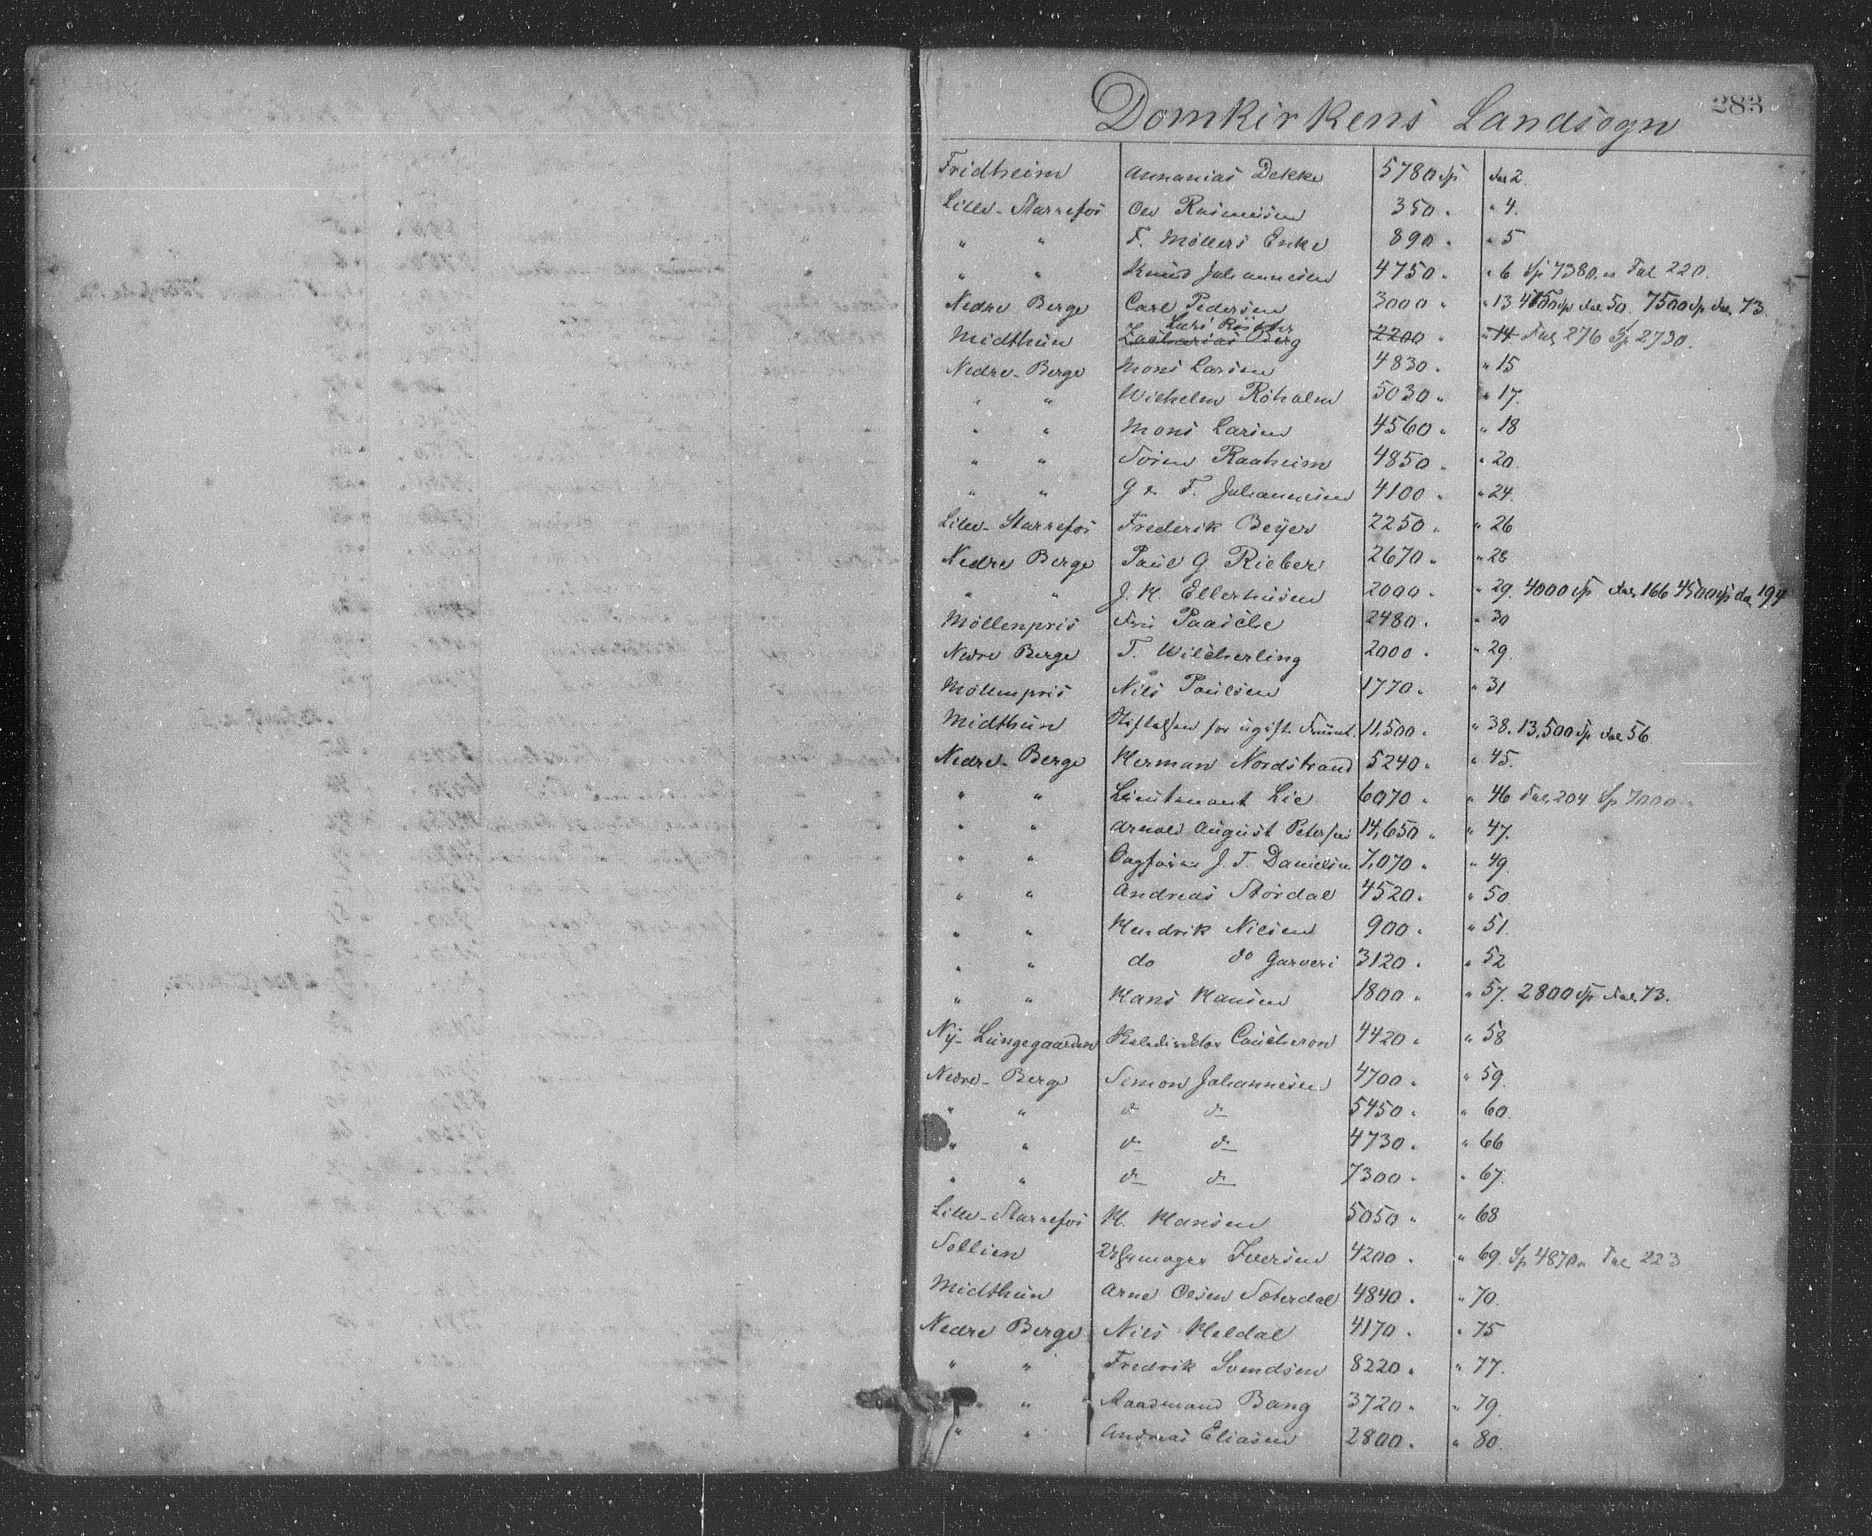 283
Domkirkens Landsogn
Fridheim Annanias Dekke 5780 Sp Fol 2.
Lille-Starrefos Ole Rasmusen 350 " " 4.
" " F. Møllers Enke 890 " " 5
" " Knud Johannesen 4750 " " 6 Sp 7380 " Fol 220.
Nedre Berge Carl Pedersen 3000 " " 13 4750 Sp Fol 50. 7500 Sp Fol 73.
Lars
Midthun Zacharias Berg 2200 " " 14 Fol 276 Sp 2730.
Nedre-Berge Mons Larsen 4830 " " 15
" " Wilhelm Røholm 5030 " " 17.
" " Mons Larsen 4560 " " 18
" " Søren Raaheim 4850 " " 20.
" " G & F. Johannesen 4100 " " 24.
Lille-Starrefos Frederik Beyer 2250 " " 26
Nedre Berge Paul G. Rieber 2670 " " 28
" " J. H. Ellerhusen 2000 " " 29. 4000 Sp Fol 166 4500 Sp Fol 199
Møllenpris Fru Paasche 2480 " " 30
Nedre Berge T. Wilcherling 2000 " " 29.
Møllenpris Nils Paulsen 1770 " " 31
Midthun Stiftelsen for ugift. Fruent. 11,500 " " 38. 13,500 Sp Fol 56
Nedre-Berge Herman Nordstrand 5240 " " 45.
" " Lieutenant Lie 6070 " " 46 Fol 204 Sp 7000 "
" " Arnold August Petersen 14,650 " " 47.
" " J. T. Danielsen 7,070 " " 49.
" " Andreas Størdal 4520 " " 50.
" " Hendrik Nilsen 900 " " 51
" " do do Garveri 3120 " " 52
" " Hans Hansen 1800 " " 57. 2800 Sp Fol 73.
Ny-Lungegaarden Coucheron 4420 " " 58
Nedre-Berge Simon Johannesen 4700 " " 59.
" " do do 5450 " " 60.
" " do do 4730 " " 66
" " do do 7300 " " 67.
Lille-Starrefos H. Hansen 5050 " " 68
Sollien Uhrmager Iversen 4200 " " 69. Sp 4870 " Fol 223
Midthun Arne Olsen Sæterdal 4840 " " 70.
Nedre Berge Nils Heldal 4170 " " 75
" " Fredrik Svendsen 8220 " " 77.
" " Raadmand Bang 3720 " " 79.
" " Andreas Eliasen 2800 " " 80.